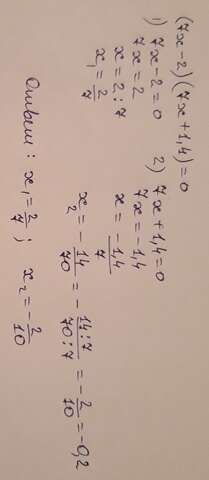 (7x-2)(7x+1,4)=0
1) 7x-2=0
7x=2
x=2:7
x₁=2/7
2) 7x+1,4=0
7x=-1,4
x=-1,4/7
x₂=-14/70=-14:7/70:7=-2/10=-0,2
Ответ: x₁=2/7; x₂=-2/10